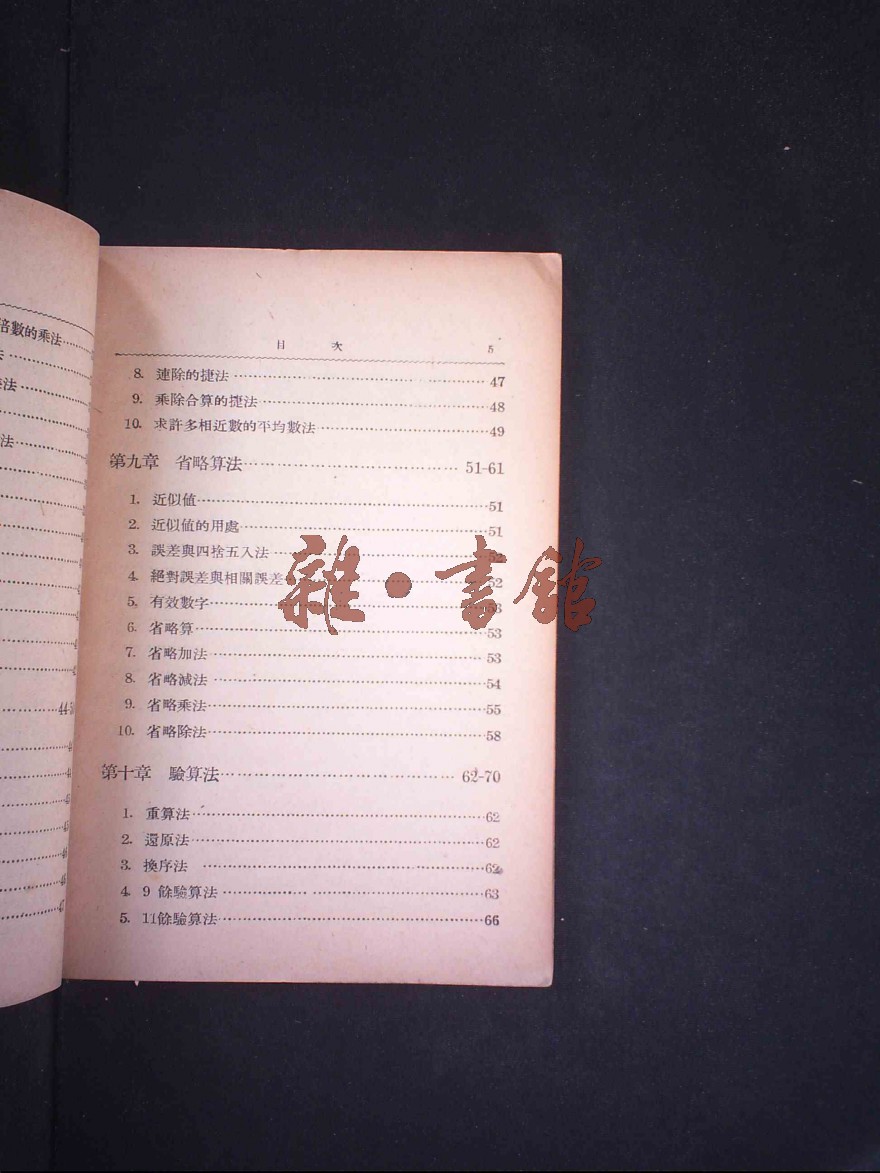 倍數的乘法……
法……
乘法……
法……
……44-
目 次 5
8. 連除的捷法……47
9. 乘除合算的捷法……48
10. 求許多相近數的平均數法……49
第九章 省略算法……51-61
1. 近似値……51
2. 近似値的用處……51
3. 誤差與四捨五入法……52
4. 絕對誤差與相關誤差……52
5. 有效數字……53
6. 省略算……53
7. 省略加法……53
8. 省略減法……54
9. 省略乘法……55
10. 省略除法……58
第十章 驗算法……62-70
1. 重算法……62
2. 還原法……62
3. 換序法……62
4. 9 餘驗算法……63
5. 11餘驗算法……66
雜·書館